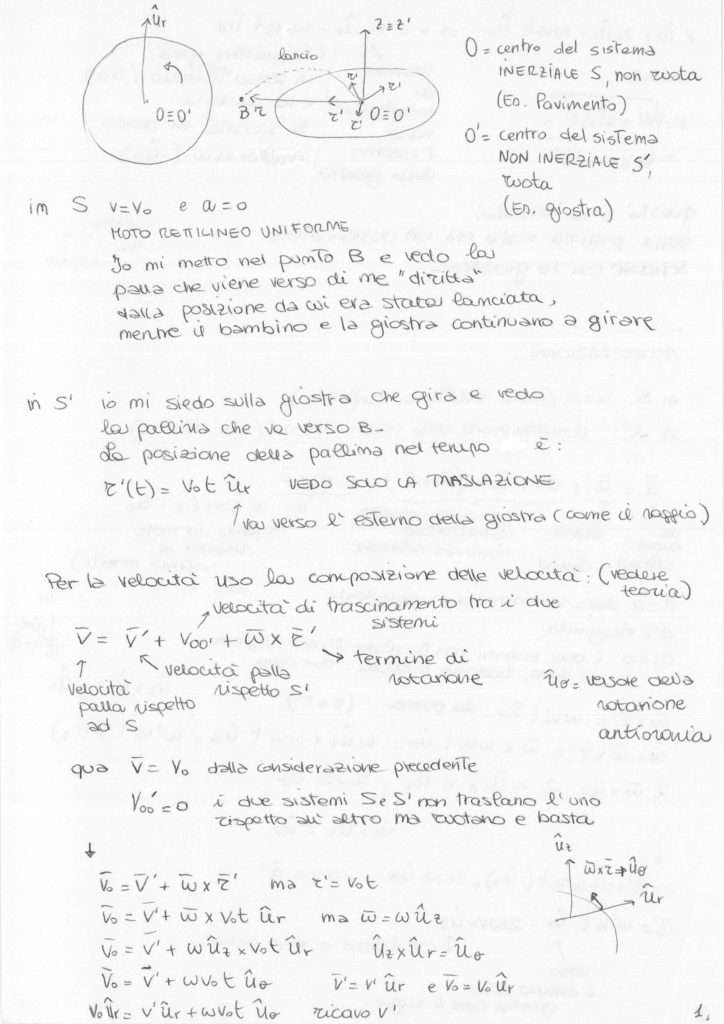 ûr
O≡O'
lancio
Z≡Z'
r'
r'
B r
r'
r'
O≡O'
O = centro del sistema
INERZIALE S, non ruota
(Es. Pavimento)
O' = centro del sistema
NON INERZIALE S',
ruota
(Es. giostra)
im S v=v₀ e a=0
MOTO RETTILINEO UNIFORME
Io mi metto nel punto B e vedo la
palla che viene verso di me "diritta"
dalla posizione da cui era stata lanciata,
mentre il bambino e la giostra continuano a girare
in S' io mi siedo sulla giostra che gira e vedo
la pallina che va verso B.
La posizione della pallina nel tempo è:
r'(t) = v₀t ûr VEDO SOLO LA TRASLAZIONE
va verso l'esterno della giostra (come il raggio)
Per la velocità uso la composizione delle velocità: (vedere
teoria)
velocità di trascinamento tra i due
sistemi
v̄ = v̄' + v₀₀' + ω̄ × r̄'
termine di
rotazione
velocità palla
rispetto S'
velocità
palla rispetto
ad S
ûθ = versore della
rotazione
antioraria
qua v̄ = v₀ dalla considerazione precedente
V₀₀' = 0 i due sistemi S e S' non traslano l'uno
rispetto all'altro ma ruotano e basta
ûz
ω̄×r̄ ⇒ ûθ
ûr
v̄₀ = v̄' + ω̄ × r̄' ma r' = v₀t
v̄₀ = v̄' + ω̄ × v₀t ûr ma ω̄ = ω ûz
v̄₀ = v̄' + ω ûz × v₀t ûr ûz × ûr = ûθ
v̄₀ = v̄' + ωv₀t ûθ v̄' = v' ûr e v̄₀ = v₀ ûr
v₀ûr = v' ûr + ωv₀t ûθ ricavo v'
1.